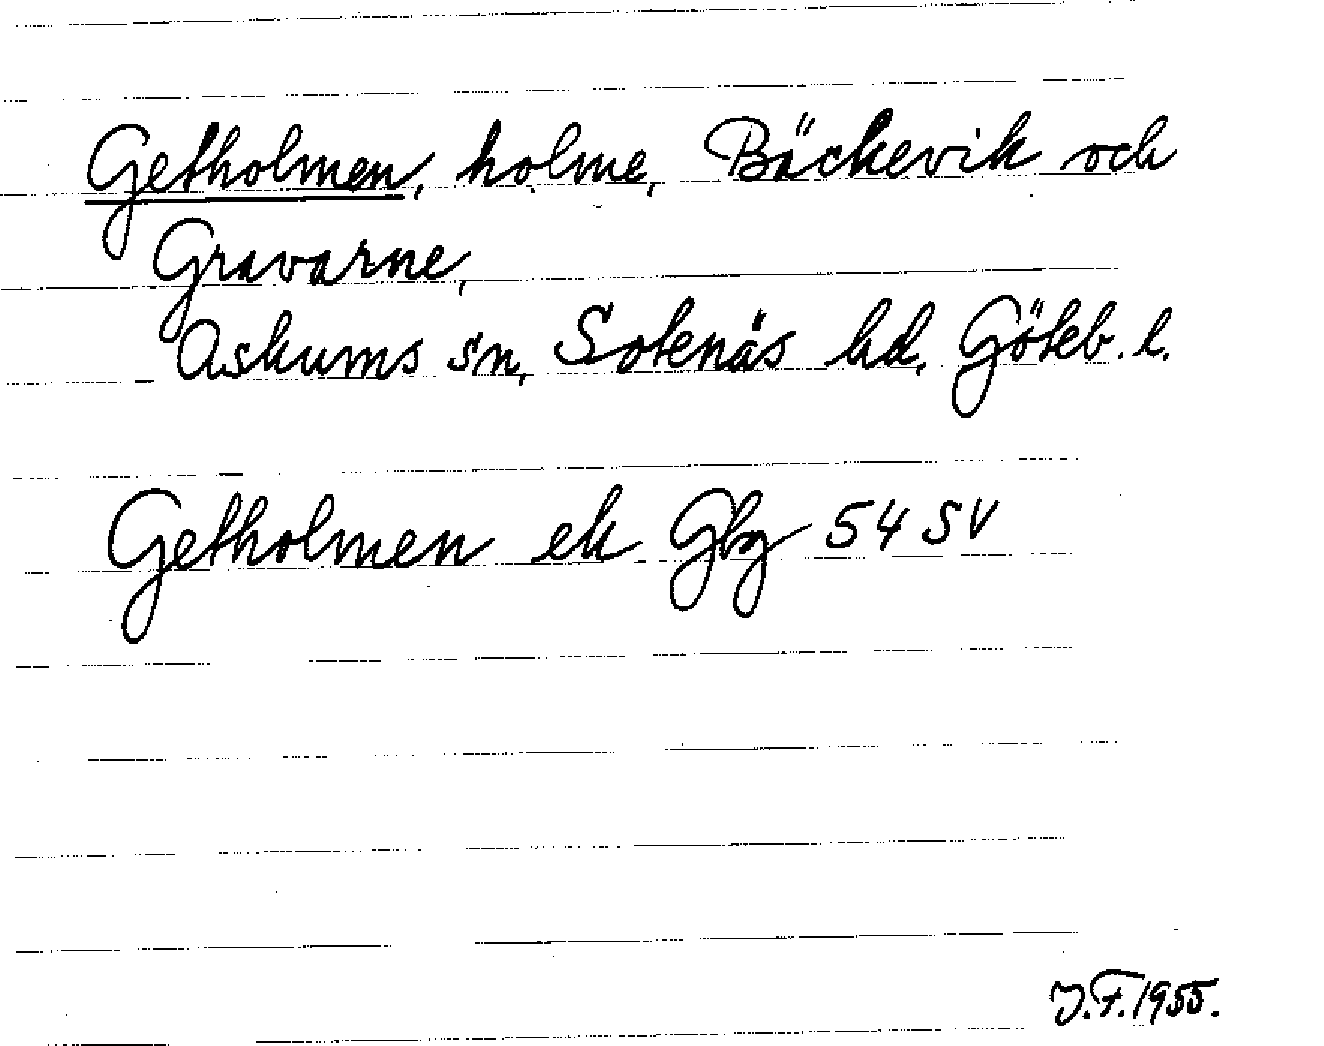 Getholmen, holme, Bäckevik och
Gravarne,
Askums sn, Sotenäs hd, Göteb. l.
Getholmen ek Gbg 54 SV
J.F. 1955.